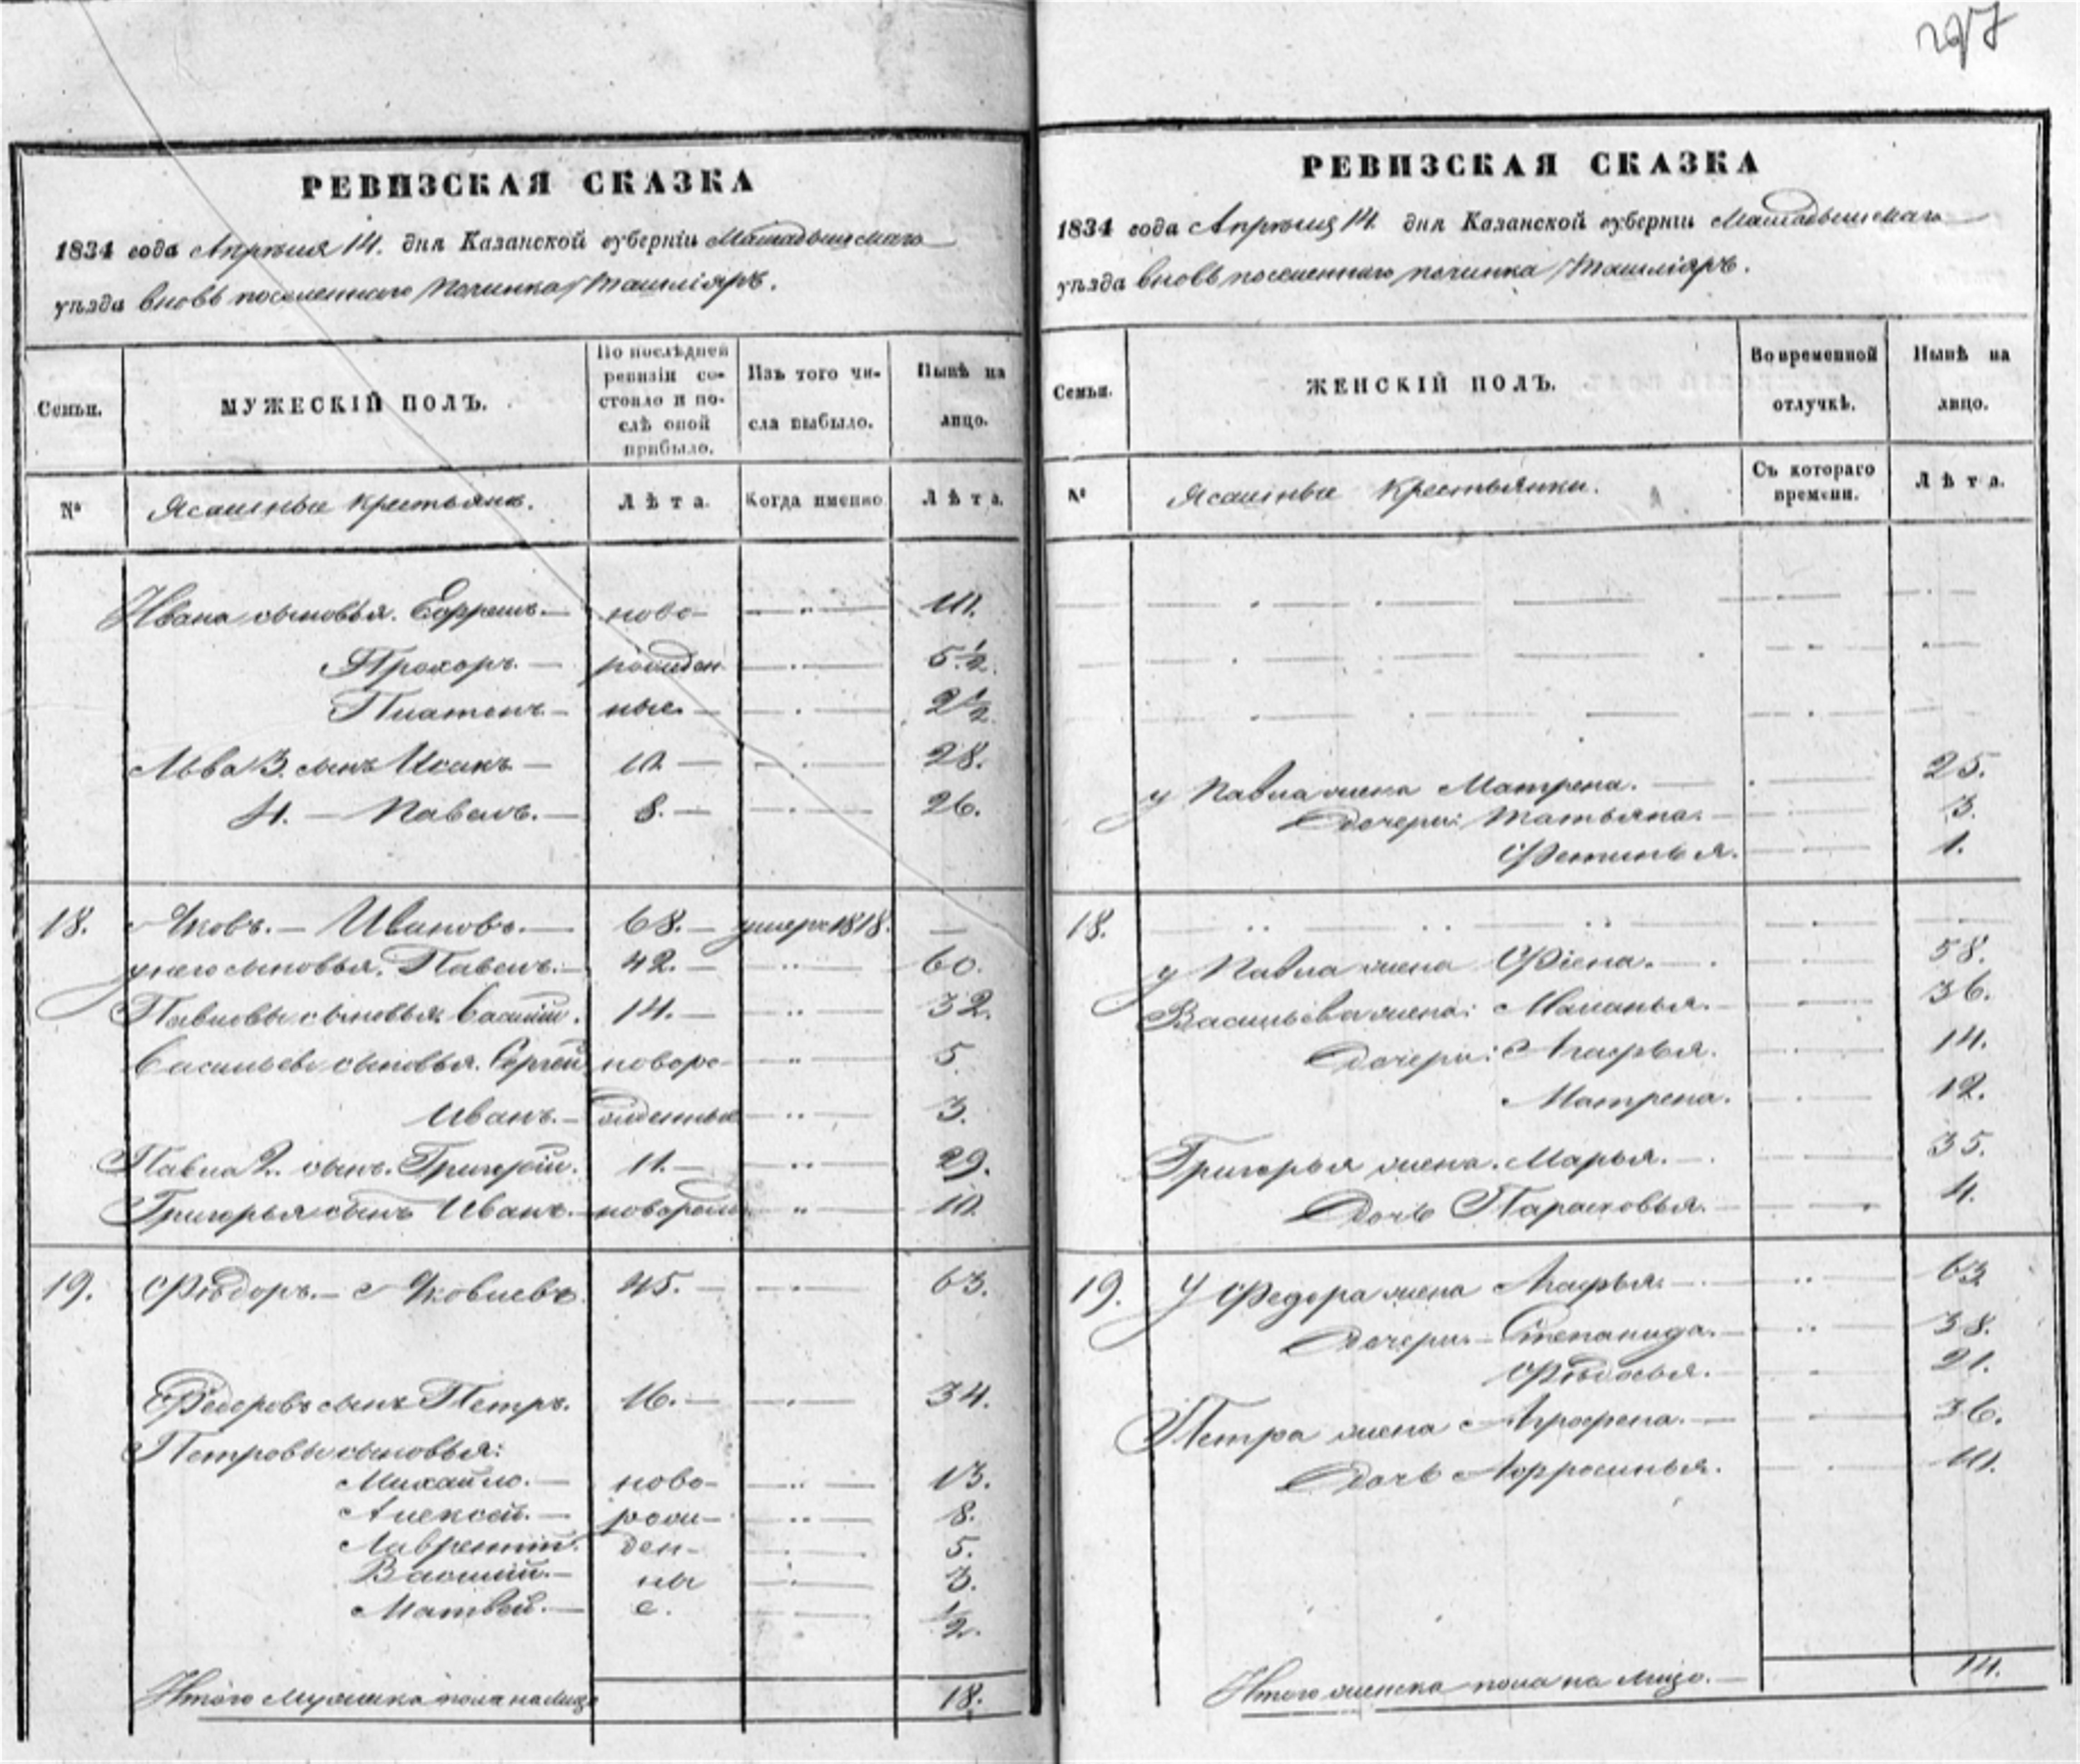 РЕВИЗСКАЯ СКАЗКА
1834 года Апрѣля 14. дня Казанской губерніи Мамадышскаго
уѣзда вновь поселеннаго починка Ташліяръ.
Семьи.
МУЖЕСКІЙ ПОЛЪ.
По послѣдней
ревизіи со-
стояло и по-
слѣ оной
прибыло.
Изъ того чи-
сла выбыло.
Нынѣ на
лицо.
№
Ясашные крестьяне.
Лѣта.
Когда именно
Лѣта.
Ивана сыновья. Ефремъ. ново-
Прохоръ. рожден 5½.
Платонъ ные. 2½
Льва 3. сынъ Исакъ 10 28.
4. Павелъ. 8. 26.
18. Яковъ. Ивановъ. 68. умеръ 1818.
у него сыновья. Павелъ. 42. 60.
Павловы сыновья Василій. 14. 32.
Васильевы сыновья. Сергей новоро- 5.
Иванъ. жденные 3.
Павла 2. сынъ. Григорій. 11. 29.
Григорья сынъ Иванъ. новорож 10.
19. Фѣдоръ. Яковлевъ 45. 63.
Федоровъ сынъ Петръ. 16. 34.
Петровы сыновья:
Михайло. ново- 13.
Алексей. рож- 8.
Лаврентій. ден- 5.
Василій. ны 3.
Матвей. е. ½.
Итого Мужеска пола на лицо 18.
РЕВИЗСКАЯ СКАЗКА
1834 года Апрѣля 14. дня Казанской губерніи Мамадышскаго
уѣзда вновь поселеннаго починка Ташліяръ.
Семьи.
ЖЕНСКІЙ ПОЛЪ.
Во временной
отлучкѣ.
Нынѣ на
лицо.
№
Ясашные Крестьянки.
Съ котораго
времени.
Лѣта.
у Павла жена Матрена. 25.
Дочери: Татьяна. 3.
Фетинья. 1.
18.
у Павла жена Фіена. 58.
Васильева жена: Маланья. 36.
Дочери: Агафья. 14.
Матрена. 12.
Григорья жена. Марья. 35.
Дочь Парасковья. 4.
19. У Федора жена Агафья. 63
Дочери. Степанида. 38.
Фѣдосья. 21.
Петра жена Аграфена. 36.
Дочь Афросинья.
Итого женска пола на лицо. 14.